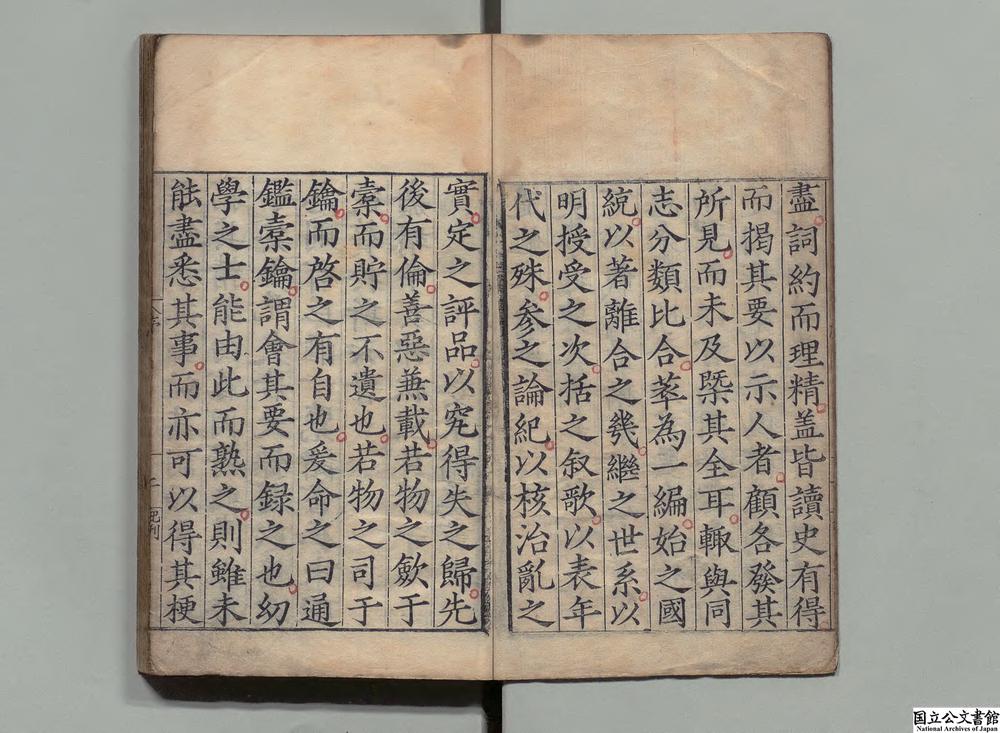 盡詞約而理精盖皆讀史有得
而揭其要以示人者顧各發其
所見而未及槩其全耳輙與同
志分類比合萃為一編始之國
統以著離合之幾繼之世系以
明授受之次括之叙歌以表年
代之殊参之論紀以核治亂之
實定之評品以究得失之歸先
後有倫善惡兼載若物之歛于
橐而貯之不遺也若物之司于
鑰而啓之有自也爰命之曰通
鑑橐鑰謂會其要而録之也㓜
學之士能由此而熟之則雖未
能盡悉其事而亦可以得其梗
国立公文書館
National Archives of Japan